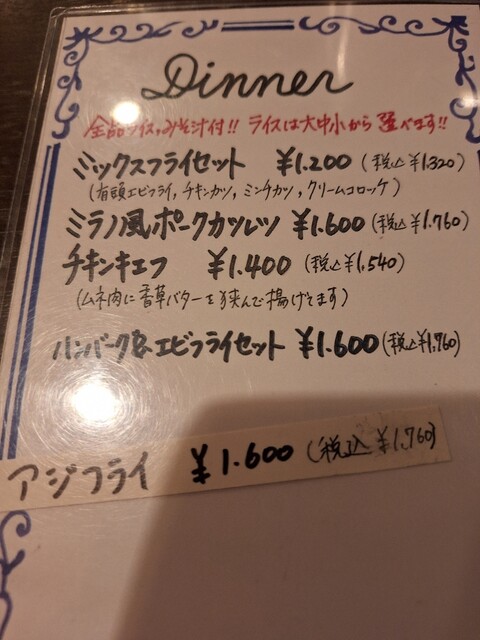 Dinner
全品ライス,みそ汁付!! ライスは大中小から選べます!!
ミックスフライセット ¥1.200 (税込¥1,320)
(有頭エビフライ, チキンカツ, ミンチカツ, クリームコロッケ)
ミラノ風ポークカツレツ ¥1.600 (税込¥1,760)
チキンキエフ ¥1.400 (税込¥1,540)
(ムネ肉に香草バターを挟んで揚げてます)
ハンバーグ&エビフライセット ¥1.600 (税込¥1,760)
アジフライ ¥1.600 (税込¥1,760)